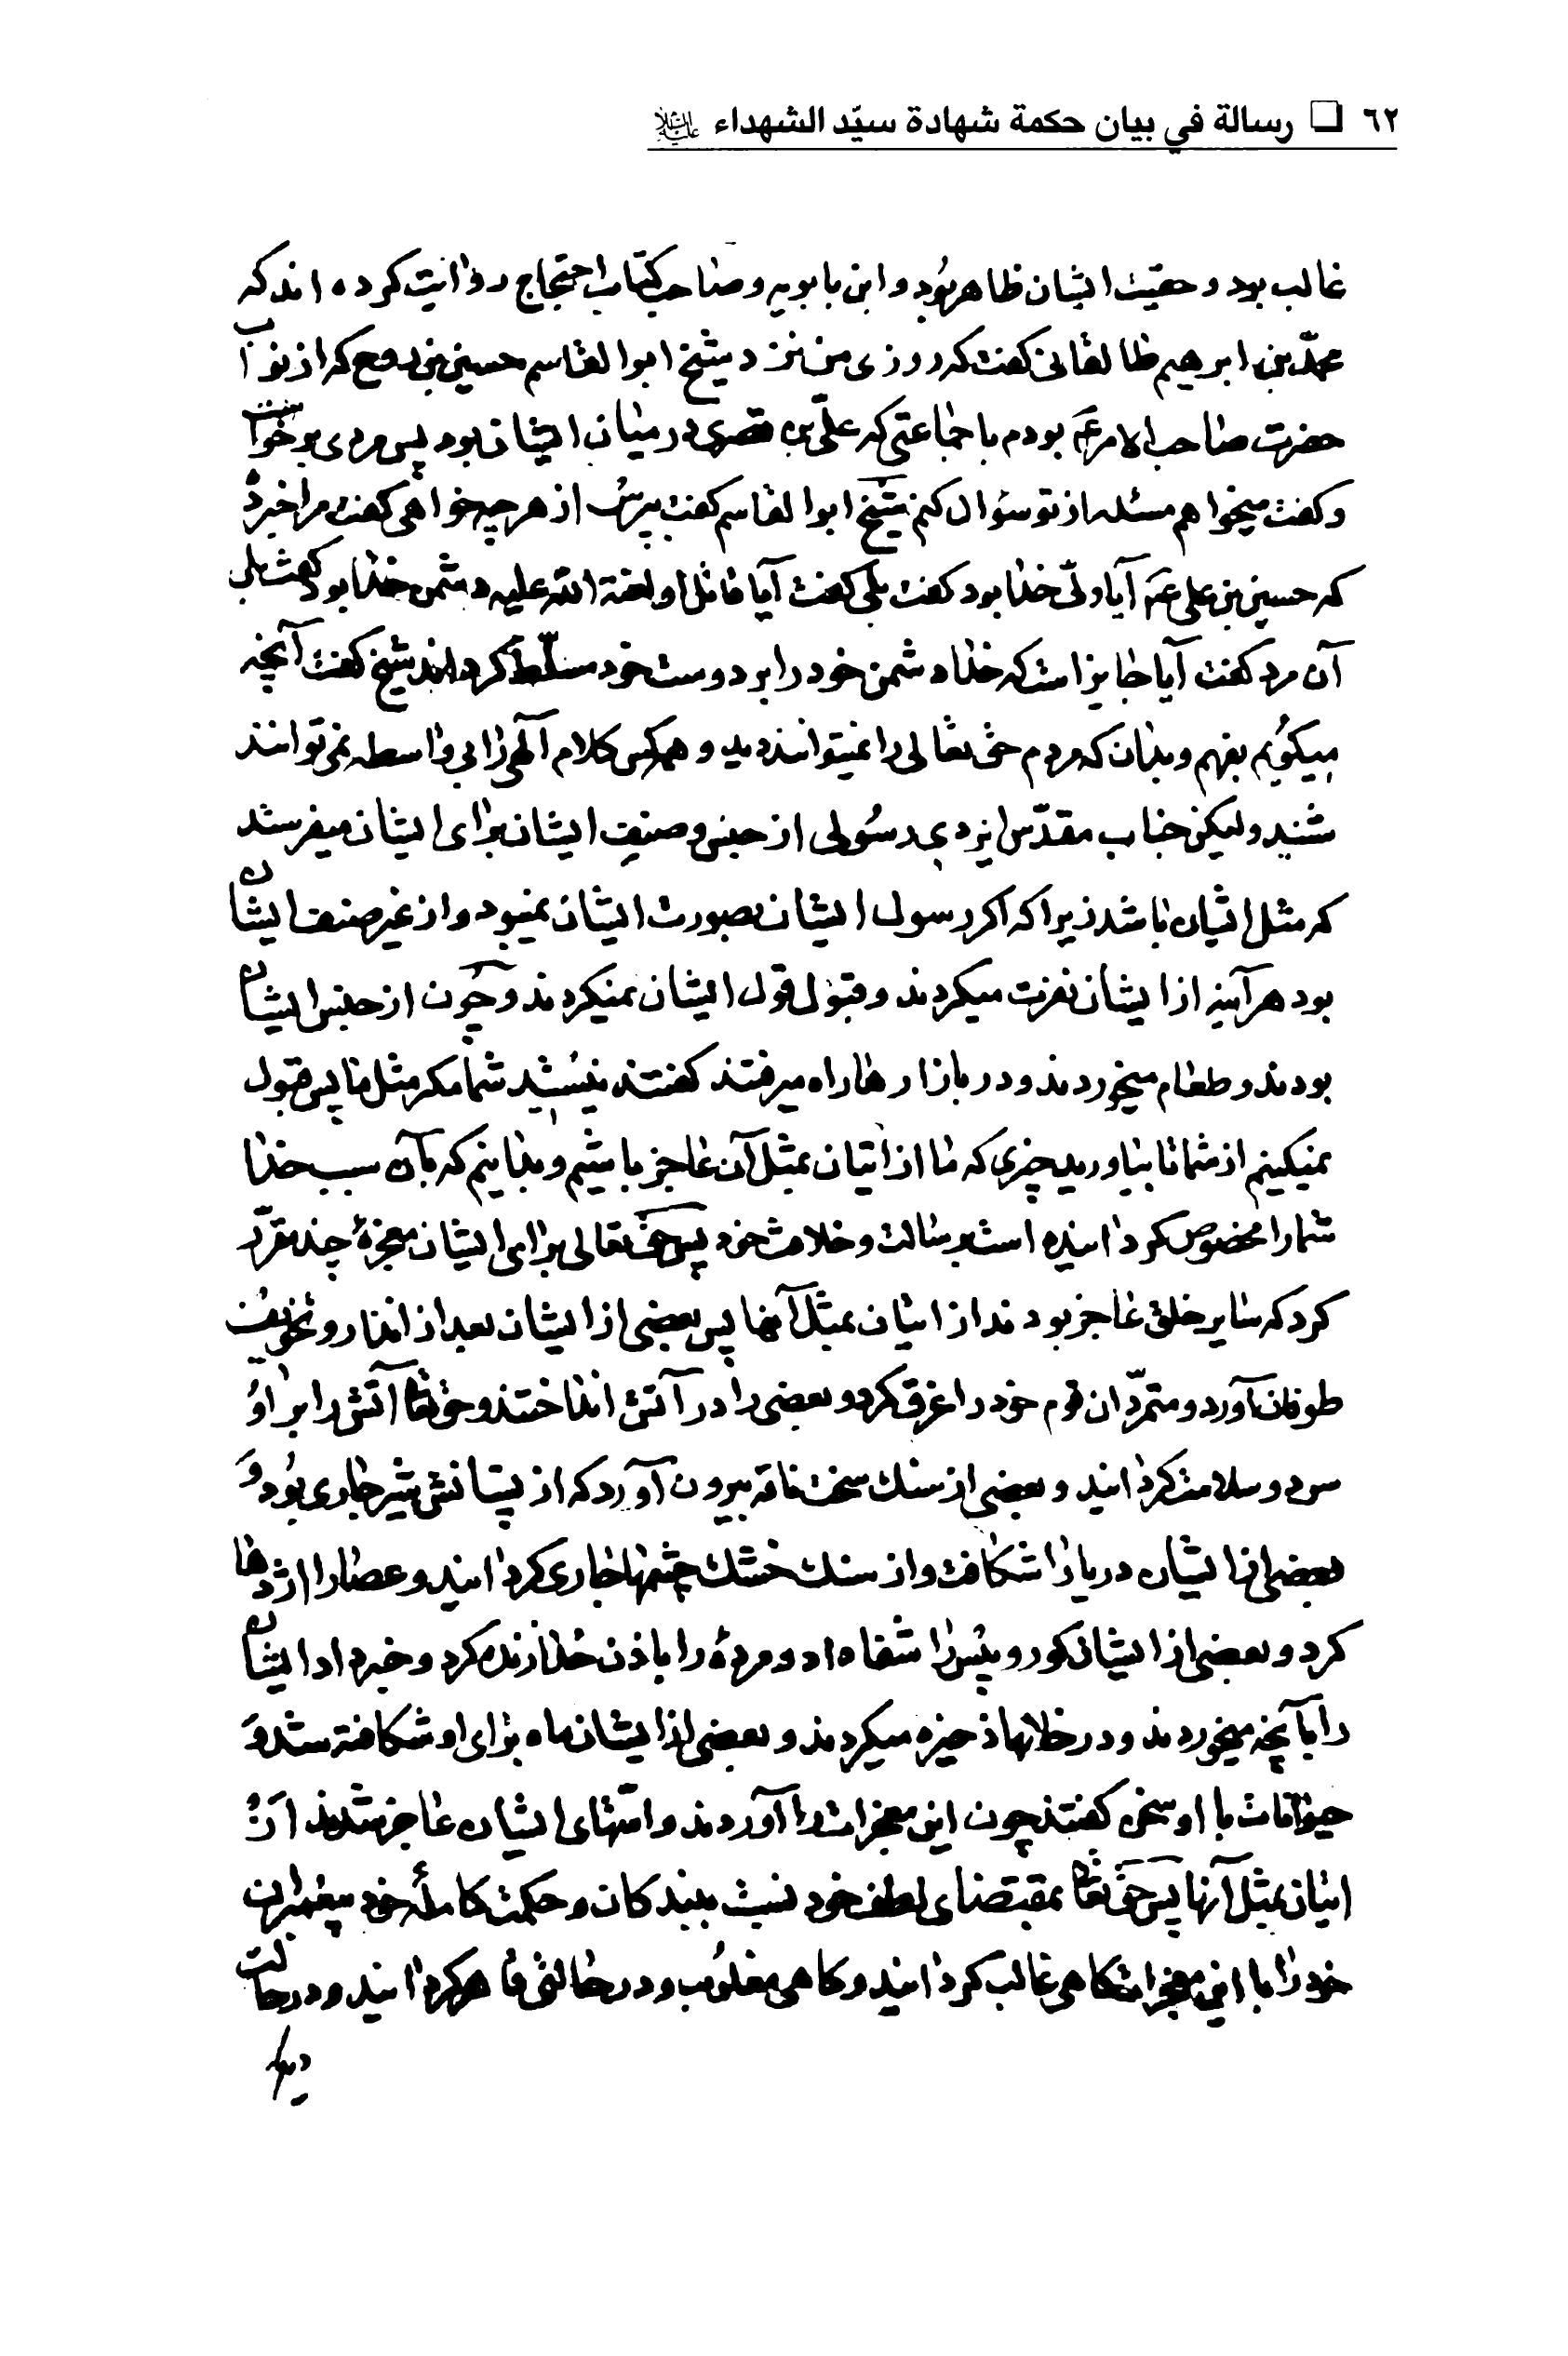 ٦٢ ❏ رسالة في بيان حكمة شهادة سيّد الشهداء عليه السلام
غالب بود و حقيت ايشان ظاهر بود و ابن بابويه و صاحب كتاب احتجاج روايت كرده اند كه
محمّد بن ابرهيم طالقانى كفت كه روزى من نزد شيخ ابوالقاسم حسين بن روح كه از نوّاب
حضرت صاحب الامر عَم بودم با جماعتى كه علىّ بن قصرى در ميان ايشان بود پس مردى برخواست
و كفت ميخواهم مسئله از تو سؤال كنم شيخ ابوالقاسم كفت بپرس از هر چه خواهى كفت مرا خبر ده
كه حسين بن على عَم آيا ولىّ خدا بود كفت بلى كفت آيا قاتل او لعنة الله عليه دشمن خدا بود كفت بلى
آن مرد كفت آيا جايز است كه خدا دشمن خود را بر دوست خود مسلّط كرداند شيخ كفت آنچه
ميكويم بفهم و بدان كه مردم حق تعالى را نميتوانند ديد و همه كس كلام آلهى را بى واسطه نمى توانند
شنيد و ليكن جناب مقدّس ايزدى رسولى از جنس و صنف ايشان براى ايشان ميفرستد
كه مثل ايشان باشد زيرا كه اكر رسول ايشان بصورت ايشان نميبود و از غير صنف ايشان
بود هر آينه از ايشان نفرت ميكردند و قبول قول ايشان نميكردند و چون از جنس ايشان
بودند و طعام ميخوردند و در بازارها راه ميرفتند كفتند نيستيد شما مكر مثل ما پس قبول
نميكنيم از شما تا بياوريد چيزى كه ما از اتيان بمثل آن عاجز باشيم و بدانيم كه بآن سبب خدا
شما را مخصوص كردانيده است برسالت و خلافت خود پس حق تعالى براى ايشان معجزهٔ چند مقرّر
كرد كه ساير خلق عاجز بودند از اتيان بمثل آنها پس بعضى از ايشان بعد از انذار و تخويف
طوفان آورد و متمرّدان قوم خود را غرق كرد و بعضى را در آتش انداختند و حق تعا آتش را بر او
سرد و سلامت كردانيد و بعضى از سنك سخت ناقه بيرون آورد كه از پستانش شير جارى بود و
بعضى از ايشان دريا را شكافت و از سنك خشك چشمها جارى كردانيد و عصا را اژدها
كرد و بعضى از ايشان كور و پيس را شفا داد و مرده را باذن خدا زنده كرد و خبر داد ايشان
را بآنچه ميخوردند و در خانها ذخيره ميكردند و بعضى از ايشان ماه براى او شكافته شد و
حيوانات با او سخن كفتند چون اين معجزات را آوردند و امّتهاى ايشان عاجز شدند از
اتيان بمثل آنها پس حق تعا بمقتضاى لطف خود نسبت ببندكان و حكمت كاملهٔ خود پيغمبران
خود را با اين معجزات كاهى غالب كردانيد و كاهى مغلوب و در حالتى قاهر كردانيد و در حالت
ديكر